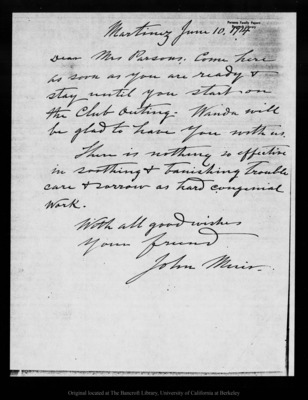 Martinez June 10, 1914
Parsons Family Papers
Bancroft Library
Dear Mrs Parsons. Come here
as soon as you are ready &
stay until you start on
the Club Outing. Wanda will
be glad to have you with us.
There is nothing so effective
in soothing & banishing trouble
care & sorrow as hard congenial
work.
With all good wishes
Your friend
John Muir.
Original located at The Bancroft Library, University of California at Berkeley